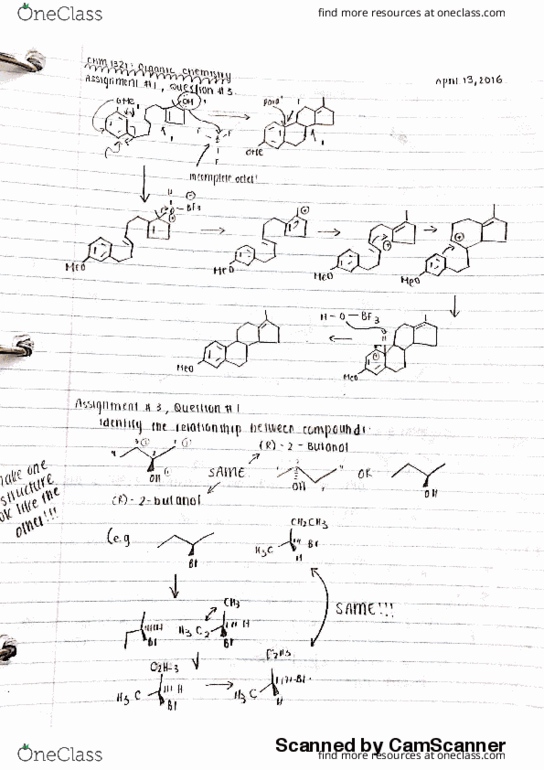 OneClass
find more resources at oneclass.com
CHM 1321: Organic Chemistry
Assignment #1, Question #3.
April 13, 2016
OMe
OH
F
F
F
OMe
incomplete octet!
H
BF3
MeO
MeO
MeO
MeO
H-O-BF3
H
MeO
MeO
Assignment #3, Question #1
Identify the relationship between compounds:
(R)-2-Butanol
OH
SAME
OH
OR
OH
(R)-2-butanol
make one
structure
look like the
other!!!
(e.g
Br
CH2CH3
H3C
Br
H
SAME!!!
CH3
H
Br
H3C2
H
Br
C2H-3
H3C
H
Br
C2H5
H3C
Br
H
Scanned by CamScanner
OneClass
find more resources at oneclass.com